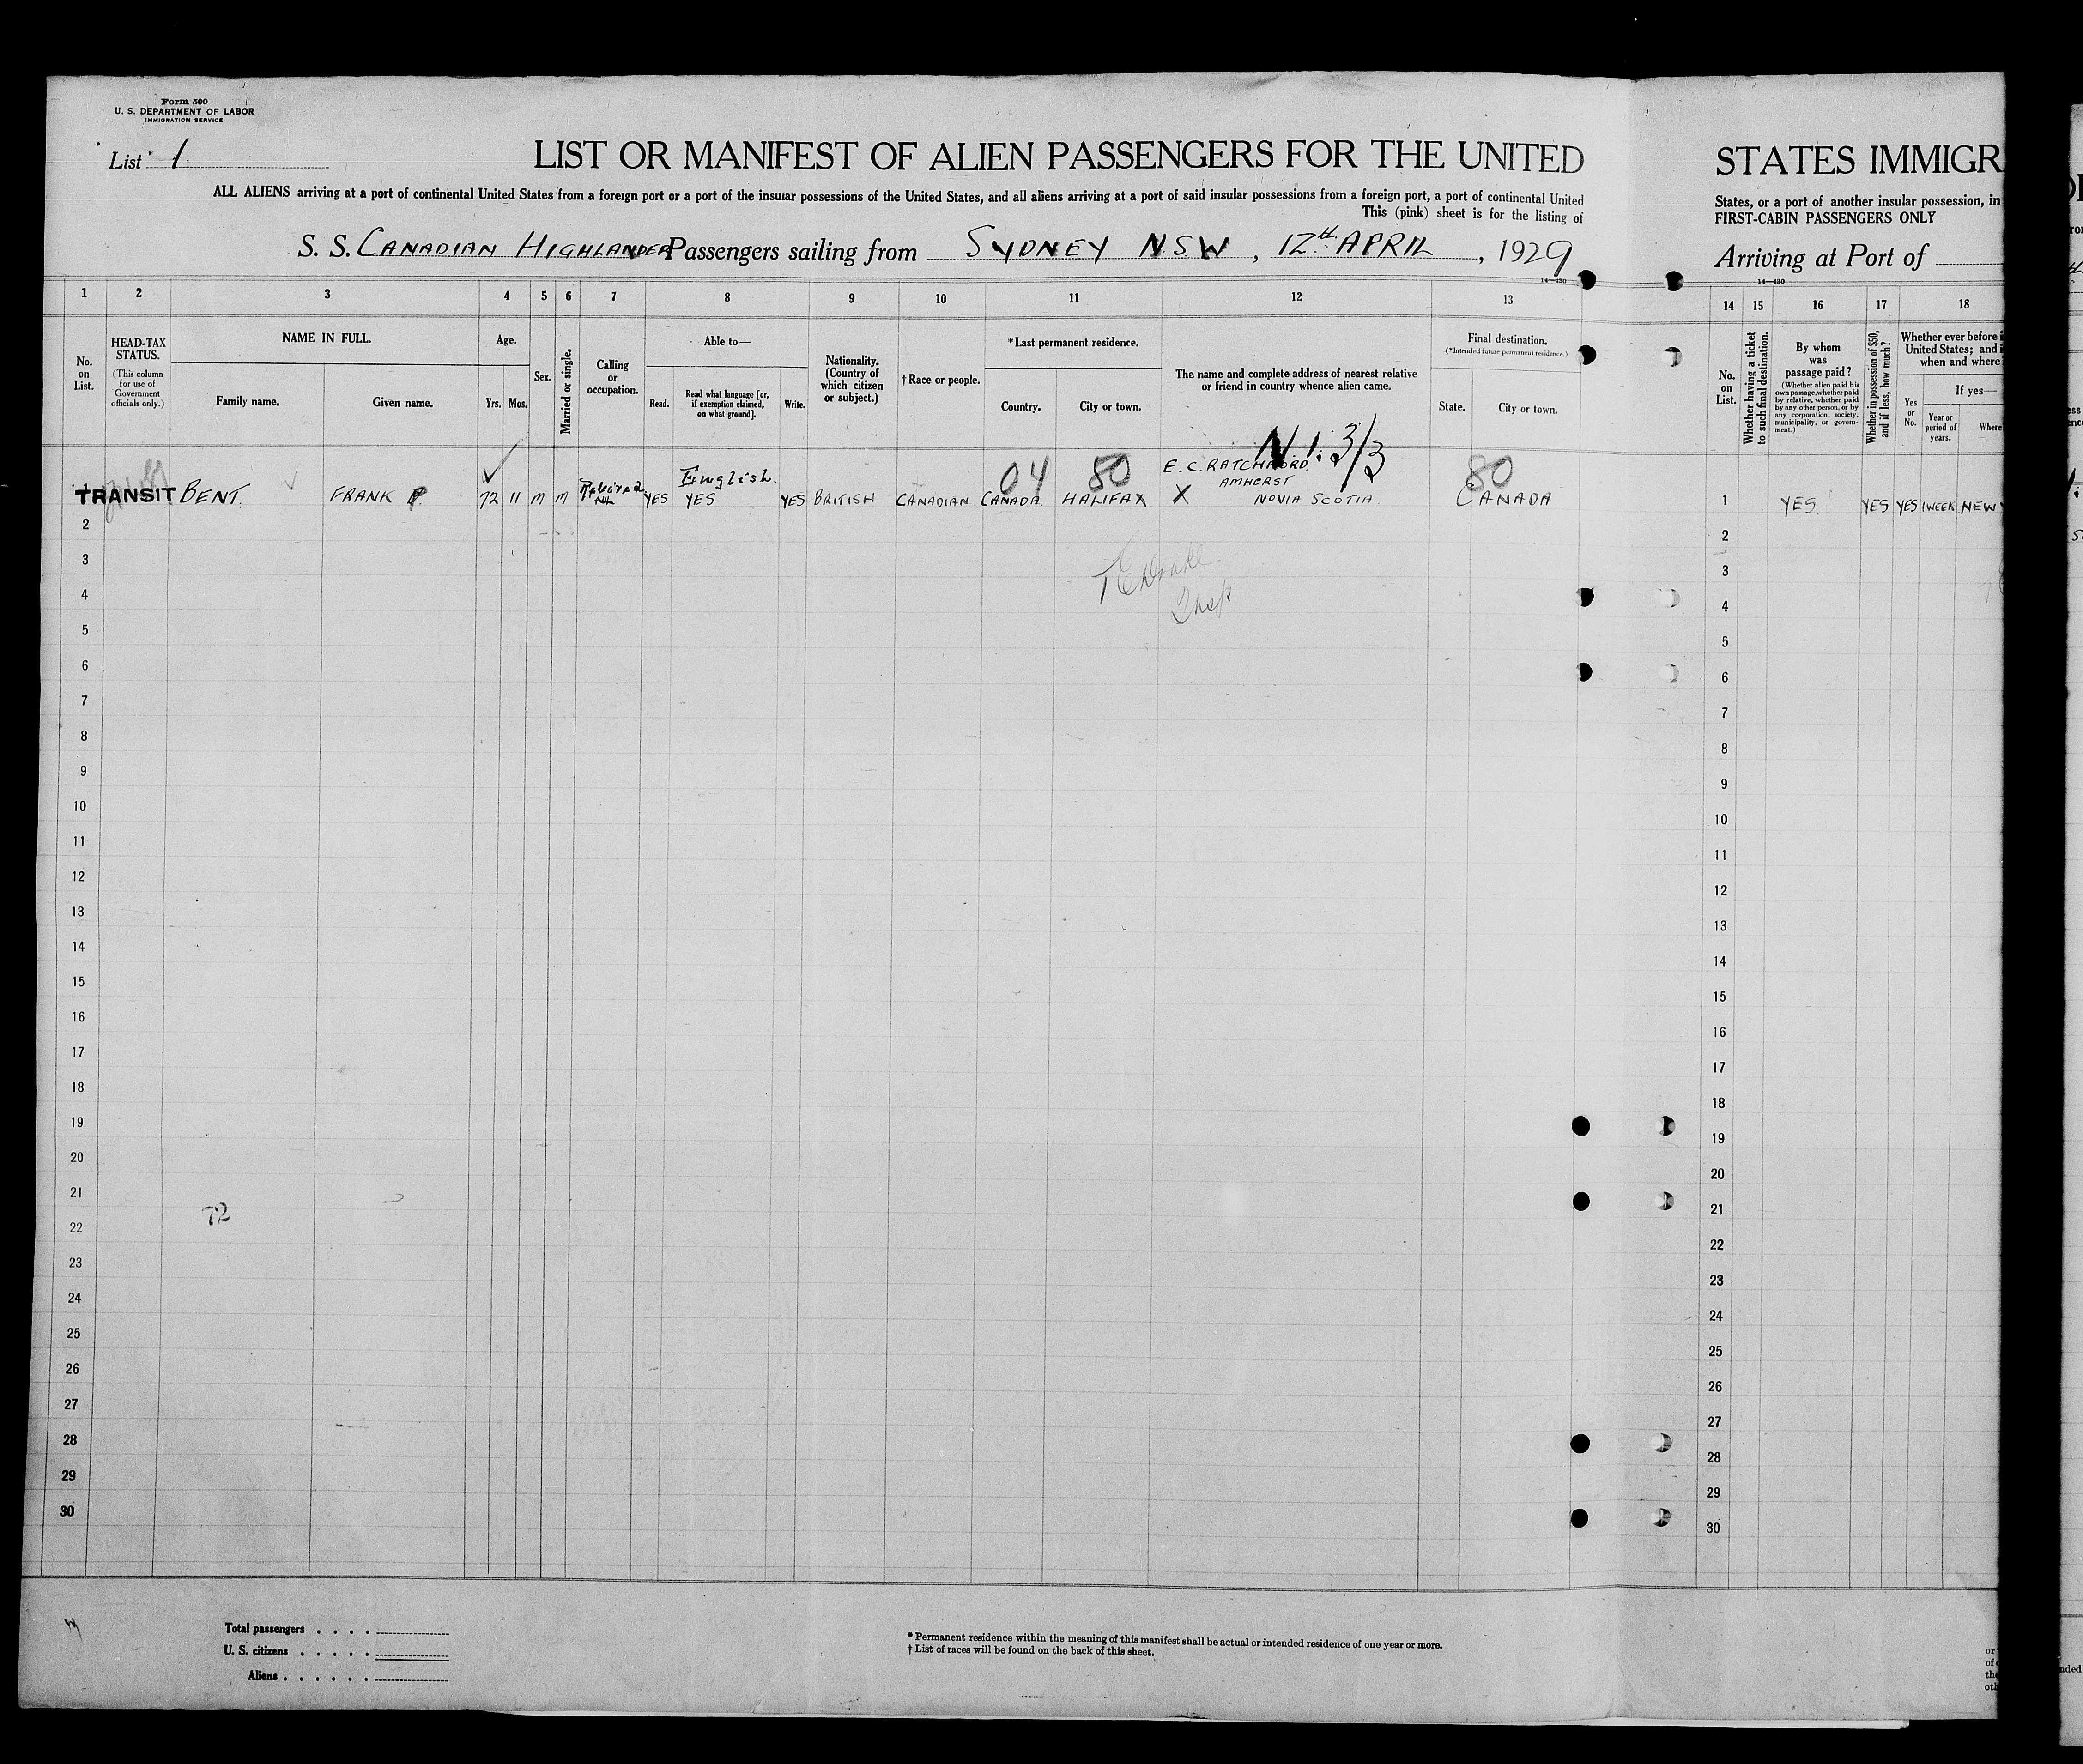 Form 500
U. S. DEPARTMENT OF LABOR
IMMIGRATION SERVICE
List 1
LIST OR MANIFEST OF ALIEN PASSENGERS FOR THE UNITED
ALL ALIENS arriving at a port of continental United States from a foreign port or a port of the insular possessions of the United States, and all aliens arriving at a port of said insular possessions from a foreign port, a port of continental United
This (pink) sheet is for the listing of
S. S. CANADIAN HIGHLANDER Passengers sailing from SYDNEY N.S.W , 12TH APRIL , 1929
14—430
1 2 3 4 5 6 7 8 9 10 11 12 13
No. on List.
HEAD-TAX STATUS.
(This column for use of Government officials only.)
NAME IN FULL.
Family name. Given name.
Age.
Yrs. Mos.
Sex.
Married or single.
Calling or occupation.
Able to—
Read. Read what language [or, if exemption claimed, on what ground]. Write.
Nationality. (Country of which citizen or subject.)
†Race or people.
*Last permanent residence.
Country. City or town.
The name and complete address of nearest relative or friend in country whence alien came.
Final destination.
(*Intended future permanent residence.)
State. City or town.
N.I. 3/3
English. 04 80 E.C. RATCHFORD 80
AMHERST
TRANSIT BENT. FRANK P. 72 11 M M Retired YES YES YES BRITISH CANADIAN CANADA HALIFAX X NOVIA SCOTIA CANADA
2
3
4
5
6
7
8
9
10
11
12
13
14
15
16
17
18
19
20
21
72
22
23
24
25
26
27
28
29
30
Total passengers
U. S. citizens
Aliens
* Permanent residence within the meaning of this manifest shall be actual or intended residence of one year or more.
† List of races will be found on the back of this sheet.
STATES IMMIGR
States, or a port of another insular possession, in
FIRST-CABIN PASSENGERS ONLY
Arriving at Port of
14—430
14 15 16 17 18
No. on List.
Whether having a ticket to such final destination.
By whom was passage paid?
(Whether alien paid his own passage, whether paid by relative, whether paid by any other person, or by any corporation, society, municipality, or government.)
Whether in possession of $50, and if less, how much?
Whether ever before i
United States; and i
when and where
If yes—
Yes or No.
Year or period of years.
Where
1 YES YES YES 1 WEEK NEW
2
3
4
5
6
7
8
9
10
11
12
13
14
15
16
17
18
19
20
21
22
23
24
25
26
27
28
29
30